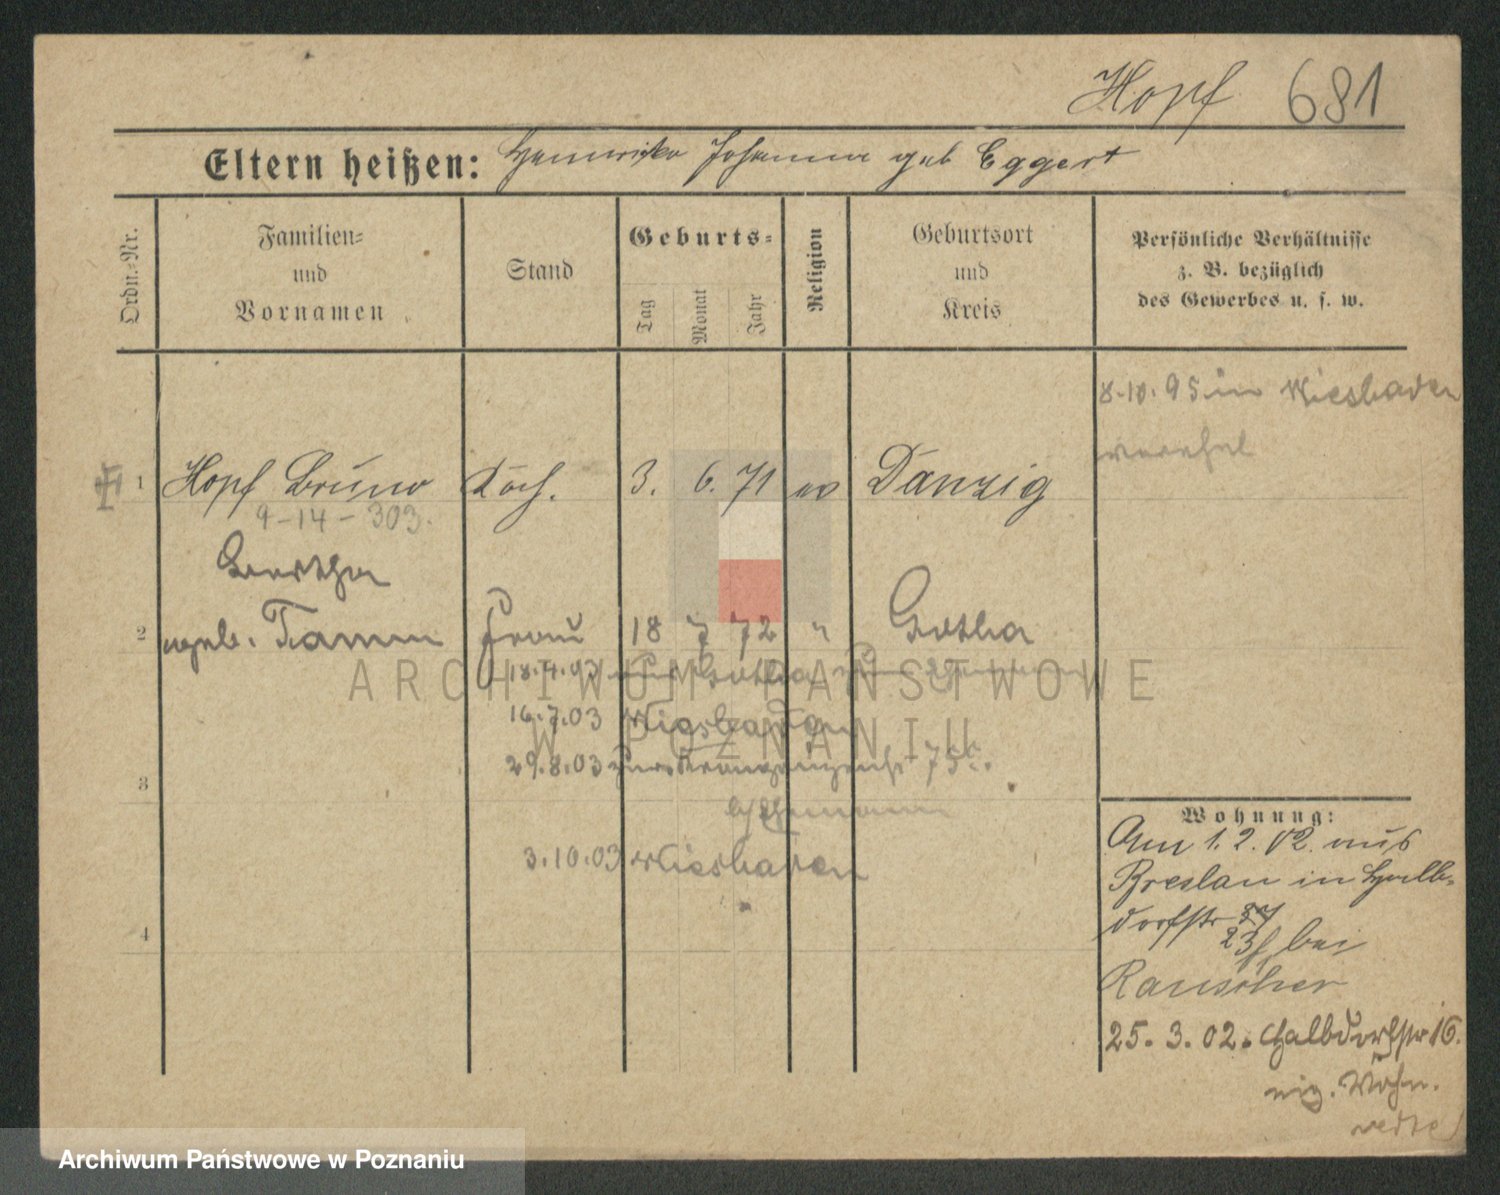 Hopf 681
Eltern heißen: Johanna geb Eggert
Ordn.-Nr.
Familien-
und
Vornamen
Stand
Geburts-
Tag
Monat
Jahr
Religion
Geburtsort
und
Kreis
Persönliche Verhältnisse
z. B. bezüglich
des Gewerbes u. s. w.
8.10.95 in Wiesbaden
1 Hopf Bruno Koch. 3. 6. 71 Danzig
9-14-303.
Bertha
2 geb. Tamm Frau 18 7 72 " Gotha
18.4.03 Gotha
16.7.03 Wiesbaden
29.8.03
3
Ehemann
3.10.03 Wiesbaden
4
Wohnung:
Am 1.2.02. aus
Breslau in Halb-
dorfstr 37
23 bei
Rauscher
25.3.02. Halbdorfstr 16.
eig. Wohn.
ARCHIWUM PAŃSTWOWE
W POZNANIU
Archiwum Państwowe w Poznaniu